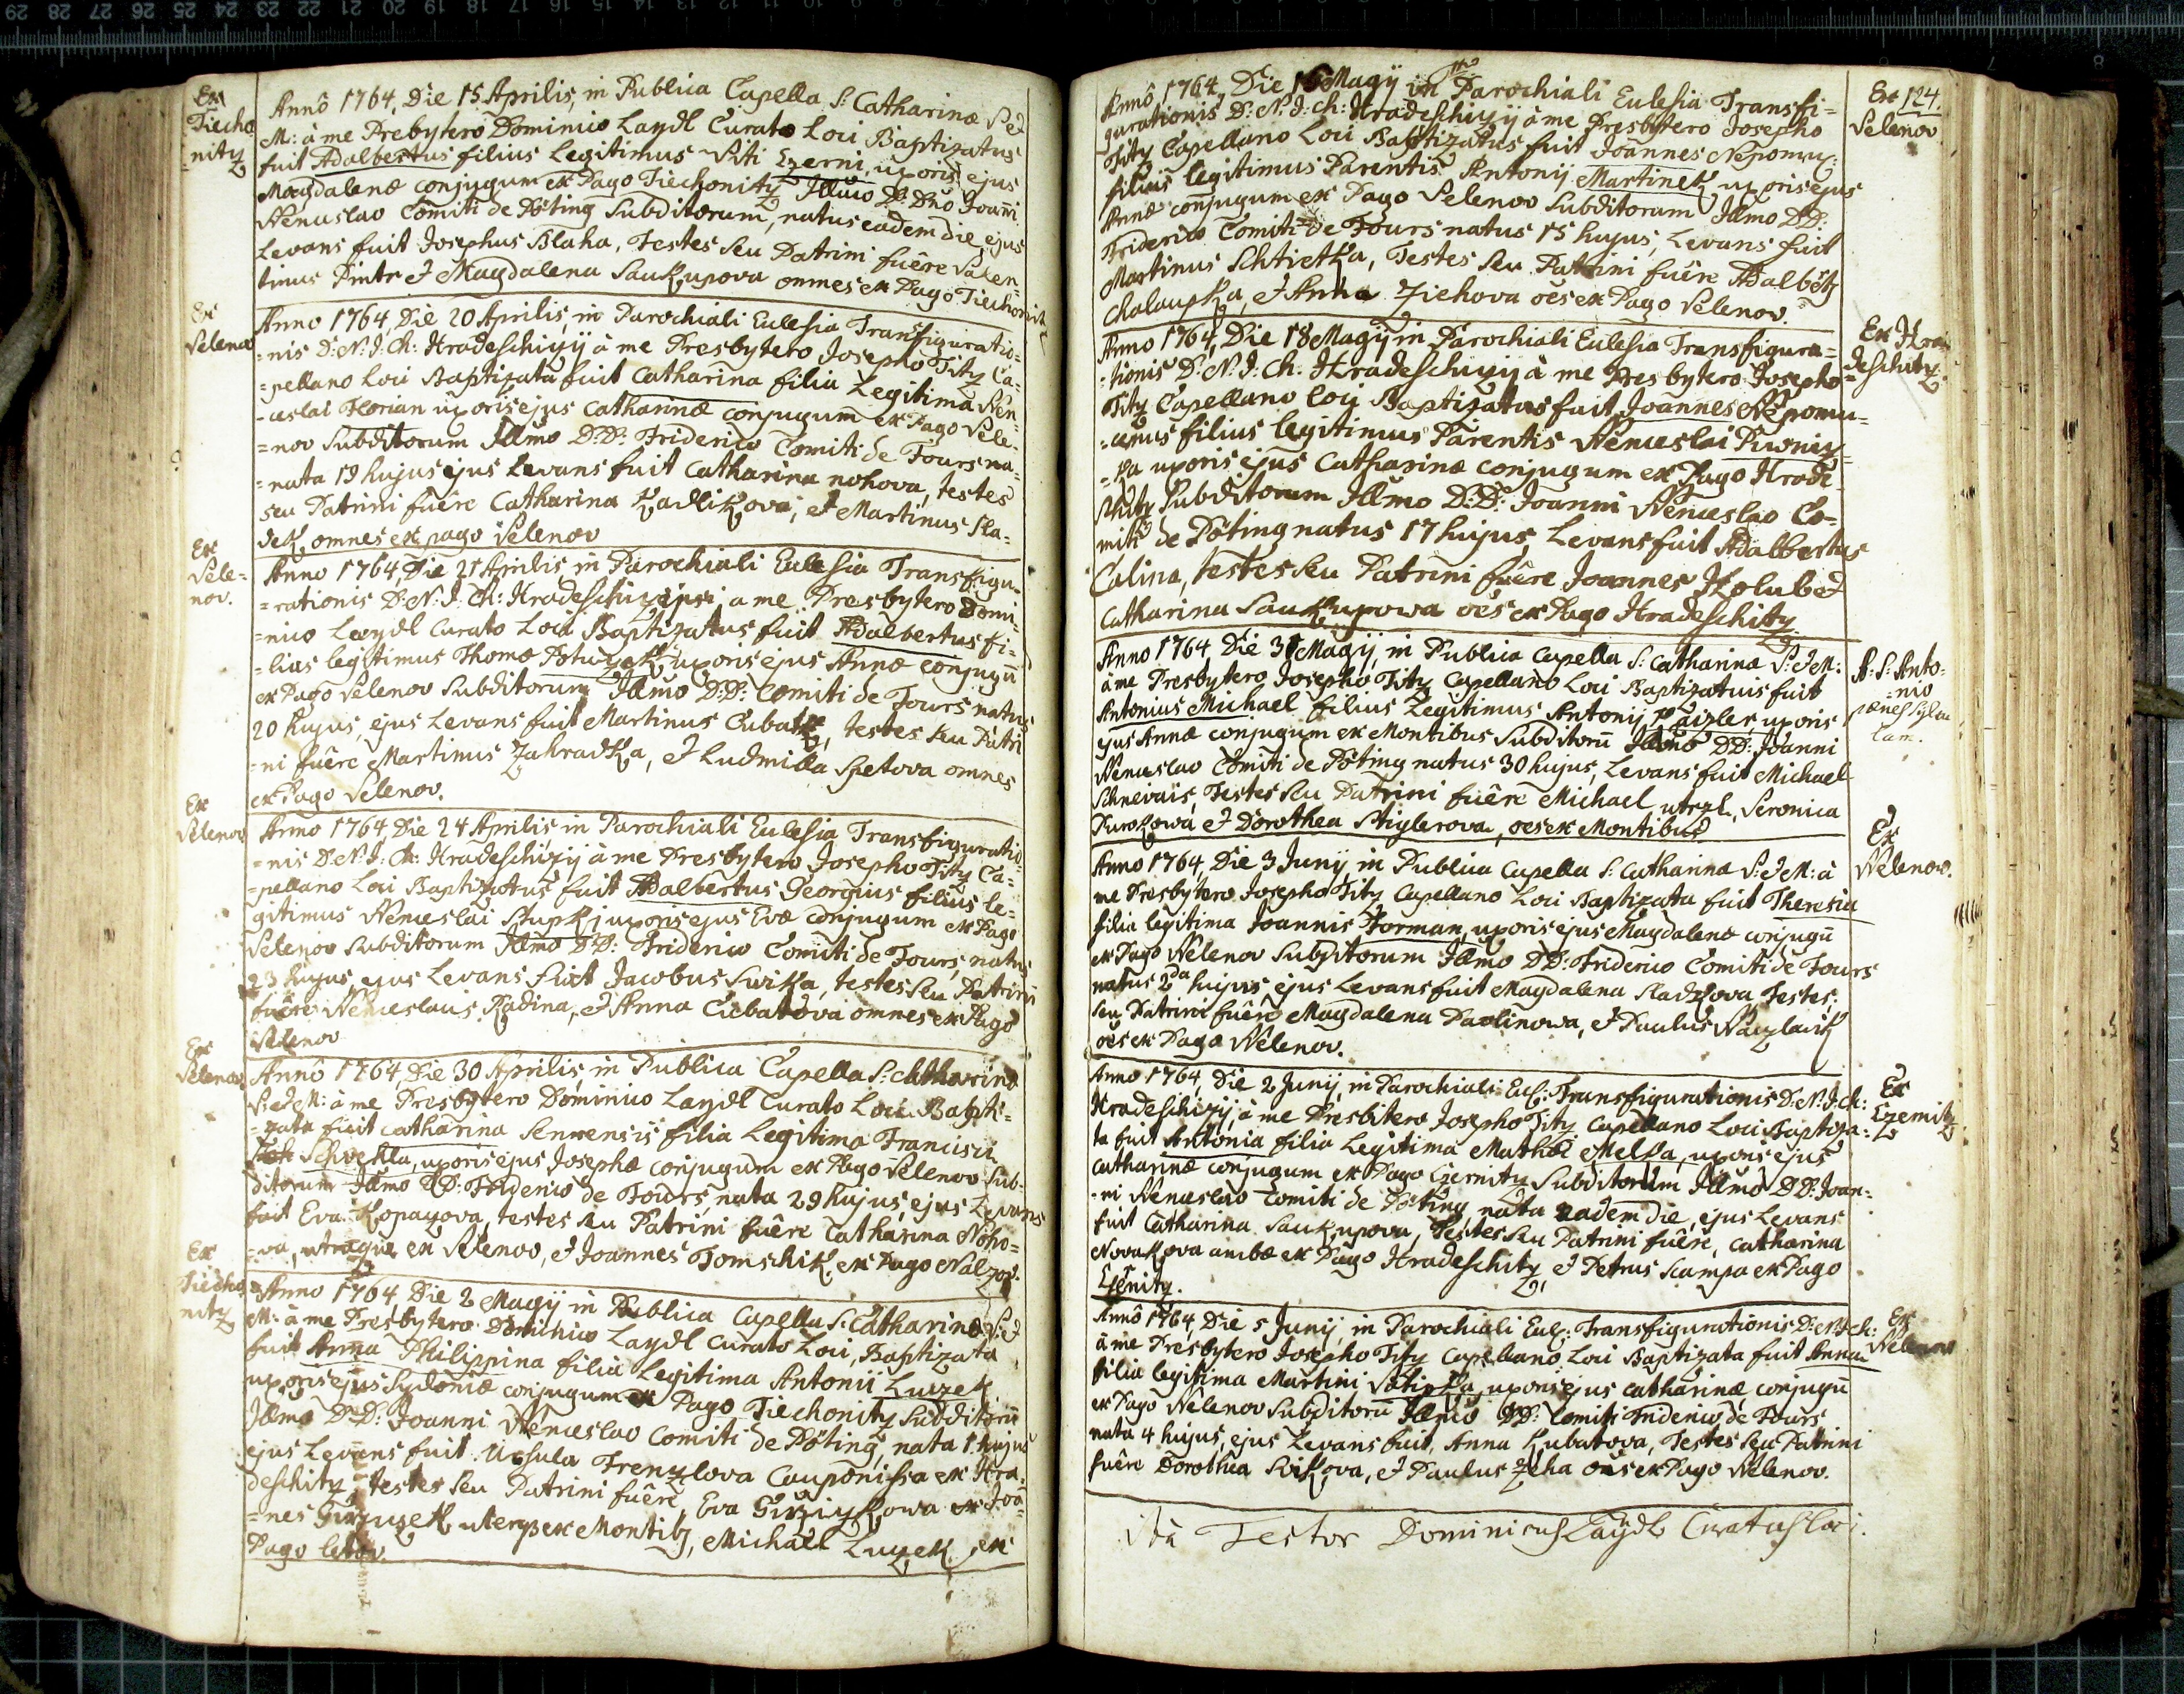 Ex
Tiecho
=nitz
Annô 1764, Die 15 Aprilis, in Publica Capella S: Catharinæ V: et
M: à me Prebytero Dominico Laydl Curato Loci Baptizatus
fuit Adalbertus filius Legitimus Viti Czerni, uxoris ejus
Magdalenæ conjugum ex Pago Tiechonitz Illmo D: Dño Joañi
Wenceslao Comiti de Pöting Subditorum, natus eadem die, ejus
Levans fuit Josephus Blaha, Testes seu Patrini fuêre Valen=
tinus Pintr et Magdalena Saukupova omnes ex Pago Tiechonitz
Ex
Velenov
Anno 1764, Die 20 Aprilis, in Parochiali Eclesia Transfiguratio=
=nis D: N: J: Ch: Hradeschizij à me Presbytero Josepho Tity Ca=
=pellano Loci Baptizata fuit Catharina filia Legitima Wen=
=ceslai Florian uxoris ejus Catharinæ conjugum ex Pago Vele=
=nov Subditorum Illmo D: D: Friderico Comiti de Fours na=
=nata 19 hujus ejus Levans fuit Catharina nohova, testes
seu Patrini fuêre Catharina Kadlikova, et Martinus Sla=
dek omnes ex pago Velenov
Ex
Vele=
nov.
Anno 1764, Die 21 Aprilis in Parochiali Eclesia Transfigu=
=rationis D: N: J: Ch: Hradeschizensi a me Presbytero Domi=
=nico Laydl Curato Loci Baptizatus fuit Adalbertus fi=
=lius legitimus Thomæ uxoris ejus Annæ conjugũ
ex Pago Velenov Subditorum Illmo D: D: Comiti de Fours natus
20 hujus, ejus Levans fuit Martinus Cubatk, testes seu Patri
=ni fuêre Martinus Zahradka, et Ludmilla Szetova omnes
ex Pago Velenov.
Ex
Velenov
Anno 1764, Die 24 Aprilis, in Parochiali Eclesia Transfiguratio
=nis D: N: J: Ch: Hradeschizij à me Presbytero Josepho Tity Ca=
=pellano Loci Baptizatus fuit Adalbertus Georgius filius le=
gitimus Wenceslai Stupkj uxoris ejus Evæ conjugum ex Pago
Velenov Subditorum Illmo D: D: Friderico Comiti de Fours, natus
23 hujus, ejus Levans fuit Jacobus Swika, testes seu Patrini
fuêre Wenceslaus Radina, et Anna Cubatova omnes ex Pago
Velenov
Ex
Velenov
Annô 1764, Die 30 Aprilis, in Publica Capella S: Catharinæ
V: et M: à me Presbytero Dominico Laydl Curato Loci Bapti=
=zata fuit Catharina Senensis filia Legitima Francisci
Schvehla, uxoris ejus Josephæ conjugum ex Pago Velenov Sub=
ditorum Illmo D: D: Friderico de Fours, nata 29 hujus, ejus Levans
fuit Eva Kopayova, testes seu Patrini fuêre Catharina Noho=
=va, utraque ex Velenov, et Joannes Tomschik ex Pago Nalzov.
Ex
Tiecho
nitz
Anno 1764, Die 2 Magij in Publica Capella S: Catharinæ V: et
M: à me Presbytero Dominico Laydl Curato Loci, Baptizata
fuit Anna Philippina filia Legitima Antonii Luczek
uxoris ejus Sydoniæ conjugum ex Pago Tiechonitz Subditorũ
Illmo D: D: Joanni Wenceslao Comiti de Pöting, nata 1 hujus
ejus Levans fuit Ursula Frenzlova Cauponissa ex Hra=
deschitz, testes seu Patrini fuêre, Eva Girziczkowa et Joã=
=nes Girziczek uterque ex Montib, Michael Luczek ex
Pago letov.
Annô 1764, Die 16 Magij in Parochiali Eclesia Transfi=
gurationis D: N: J: Ch: Hradeschizij à me Presbytero Josepho
Tity Capellano Loci Baptizatus fuit Joannes Nepomuz:
filius legitimus Parentis Antonij Martinek uxoris ejus
Annæ conjugum ex Pago Velenov Subditorum Illmo D: D:
Friderico Comiti de Fours natus 15 hujus, Levans fuit
Martinus Schtietka, Testes seu Patrini fuêre Adalbêtz
Chalaupka, et Anna Ziehova oẽs ex Pago Velenov.
Ex 124.
Velenov
Anno 1764, Die 18 Magij in Parochiali Eclesia Transfigura=
=tionis D: N: J: Ch: Hradeschizij à me Presbytero Josepho
Tity Capellano loci Baptizatus fuit Joannes Nepomu=
=cenus filius legitimus Parentis Wenceslai Piwnicz=
=ka uxoris ejus Catharinæ conjugum ex Pago Hrade
schitz Subditorum Illmo D: D: Joanni Wenceslao Co=
miti de Pöting natus 17 hujus, Levans fuit Adalbertus
Calina, testes seu Patrini fuêre Joannes Holub et
Catharina Saukupowa oẽs ex Pago Hradeschitz
Ex Hra
deschitz
Anno 1764 Die 31 Magij, in Publica Capella S: Catharinæ V: et M:
à me Presbytero Josepho Tity Capellano Loci Baptizatus fuit
Antonius Michael filius Legitimus Antonij Paizler, uxoris
ejus Annæ conjugum ex Montibus Subditorũ Illmo D D: Joanni
Wenceslao Comiti de Pöting natus 30 hujus, Levans fuit Michael
Schnevais, Testes seu Patrini fuêre Michael utrzl, Veronica
Purokowa et Dorothea Stiglerova, oes ex Montibus
A: S: Anto=
=nio
Anno 1764, Die 3 Junij, in Publica Capella S: Catharinæ V: et M: à
me Presbytero Josepho Tity Capellano Loci Baptizata fuit Theresia
filia legitima Joannis Forman, uxoris ejus Magdalenæ conjugũ
ex Pago Welenov Subditorum Illmo D D: Friderico Comiti de Fours
natus 2da hujus ejus Levans fuit Magdalena Sladkova Testes
seu Patrini fuêre Magdalena Pavlinowa, et Paulus
oẽs ex Pago Welenov.
Ex
Welenov.
Anno 1764 Die 2 Junij, in Parochiali Ecl: Transfigurationis D: N: J: Ch:
Hradeschizij, à me Presbitero Josepho Tity Capellano Loci Baptiza=
ta fuit Antonia filia Legitima Mathæi Melka, uxoris ejus
Catharinæ conjugum ex Pago Czernitz Subditorum Illmo D D: Joan=
=ni Wenceslao Comiti de Pöting nata eadem die, ejus Levans
fuit Catharina Saukupova, Testes seu Patrini fuêre, Catharina
Novakova ambæ ex Pago Hradeschitz, et Petrus Scampa ex Pago
Czẽnitz.
Ex
Czernitz
Annô 1764, Die 5 Junij, in Parochiali Ecl: Transfigurationis D: N: J: Ch:
à me Presbytero Josepho Tity Capellano Loci Baptizata fuit Anna
filia legitima Martini Votipka, uxoris ejus Catharinæ conjugũ
ex Pago Welenov Subditorũ Illmo D D: Comiti Friderico de Fours
nata 4 hujus, ejus Levans fuit, Anna Kubatova, Testes seu Patrini
fuêre Dorothea Svikova, et Paulus Zeha oẽs ex Pago Welenov.
Ex
Welenov
Ita Testor Dominicus Laydl Curatus Loci.